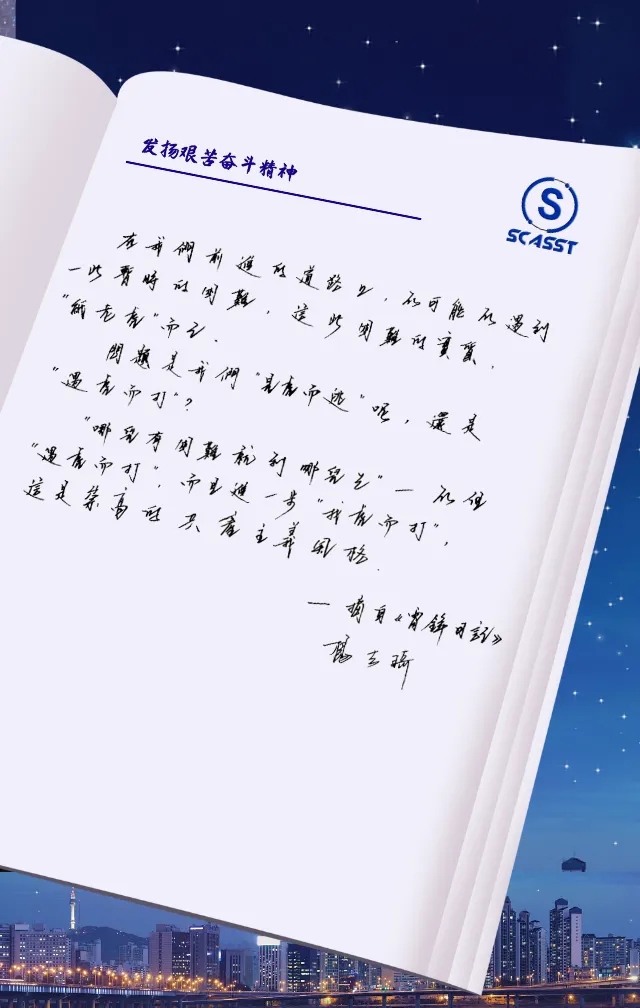 发扬艰苦奋斗精神
S
SCASST
在我們前進的道路上,不可能不遇到
一些暫時的困難,這些困難的實質,
"紙老虎"而已.
問題是我們"見虎而逃"呢,還是
"遇虎而打"?
"哪兒有困難就到哪兒去"—不但
"遇虎而打",而且進一步"找虎而打",
這是崇高的共產主義風格.
—摘自《雷鋒日記》